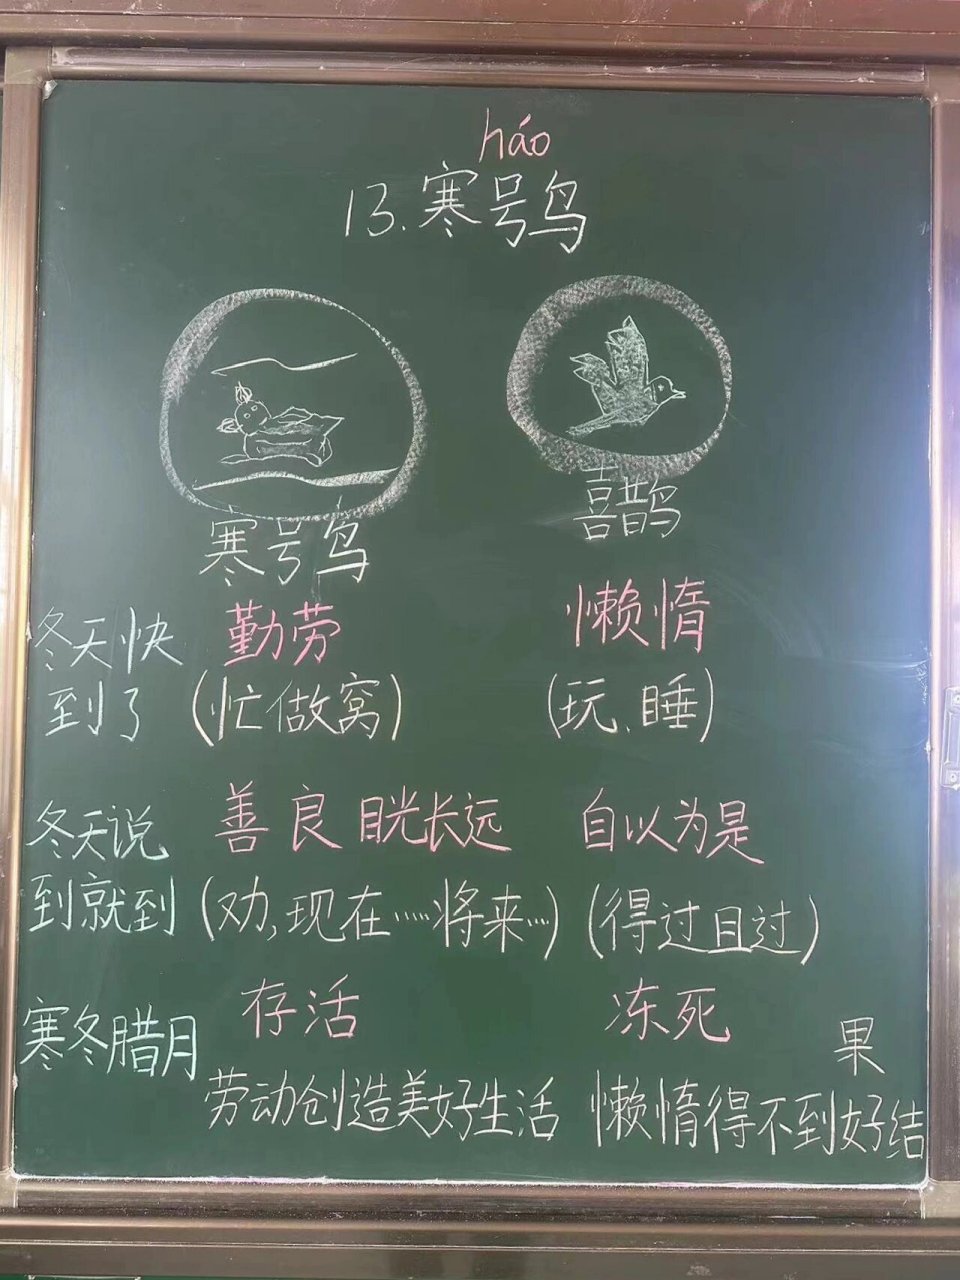 háo
13.寒号鸟
寒号鸟
喜鹊
冬天快
到了
勤劳
(忙做窝)
懒惰
(玩、睡)
冬天说
到就到
善良 目光长远
(劝,现在……将来…)
自以为是
(得过且过)
寒冬腊月
存活
冻死
劳动创造美好生活
懒惰得不到好结
果